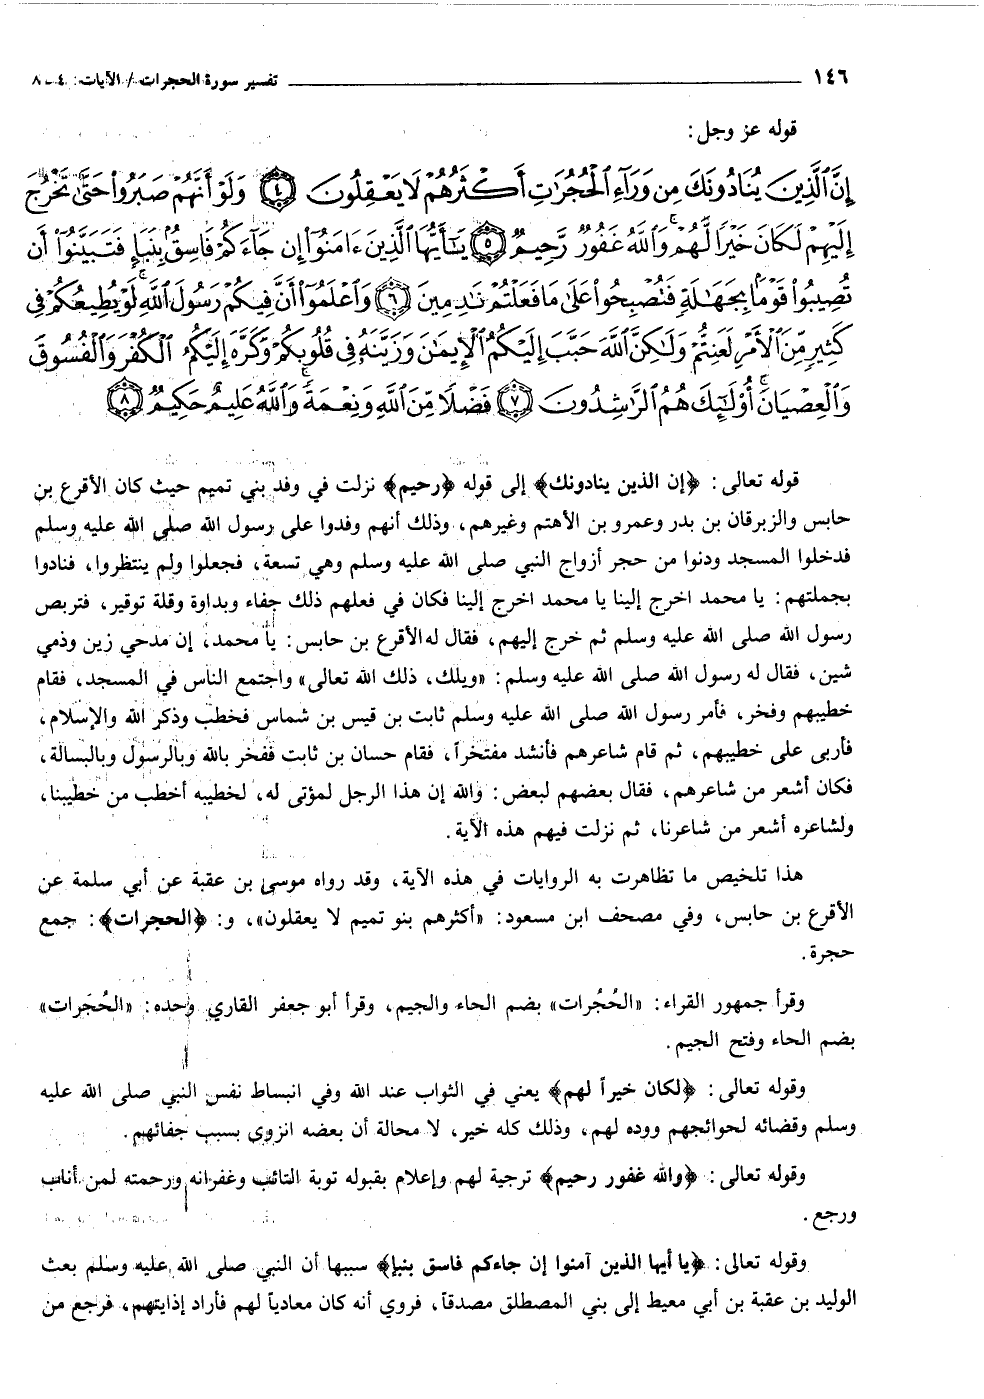 ١٤٦ تفسير سورة الحجرات / الآيات: ٤ ـ ٨
قوله عز وجل:
إِنَّ ٱلَّذِينَ يُنَادُونَكَ مِن وَرَآءِ ٱلْحُجُرَٰتِ أَكْثَرُهُمْ لَا يَعْقِلُونَ ۝٤ وَلَوْ أَنَّهُمْ صَبَرُوا۟ حَتَّىٰ تَخْرُجَ
إِلَيْهِمْ لَكَانَ خَيْرًا لَّهُمْ ۚ وَٱللَّهُ غَفُورٌ رَّحِيمٌ ۝٥ يَٰٓأَيُّهَا ٱلَّذِينَ ءَامَنُوٓا۟ إِن جَآءَكُمْ فَاسِقٌۢ بِنَبَإٍ فَتَبَيَّنُوٓا۟ أَن
تُصِيبُوا۟ قَوْمًۢا بِجَهَٰلَةٍ فَتُصْبِحُوا۟ عَلَىٰ مَا فَعَلْتُمْ نَٰدِمِينَ ۝٦ وَٱعْلَمُوٓا۟ أَنَّ فِيكُمْ رَسُولَ ٱللَّهِ ۚ لَوْ يُطِيعُكُمْ فِى
كَثِيرٍ مِّنَ ٱلْأَمْرِ لَعَنِتُّمْ وَلَٰكِنَّ ٱللَّهَ حَبَّبَ إِلَيْكُمُ ٱلْإِيمَٰنَ وَزَيَّنَهُۥ فِى قُلُوبِكُمْ وَكَرَّهَ إِلَيْكُمُ ٱلْكُفْرَ وَٱلْفُسُوقَ
وَٱلْعِصْيَانَ ۚ أُو۟لَٰٓئِكَ هُمُ ٱلرَّٰشِدُونَ ۝٧ فَضْلًا مِّنَ ٱللَّهِ وَنِعْمَةً ۚ وَٱللَّهُ عَلِيمٌ حَكِيمٌ ۝٨
قوله تعالى: ﴿إن الذين ينادونك﴾ إلى قوله ﴿رحيم﴾ نزلت في وفد بني تميم حيث كان الأقرع بن
حابس والزبرقان بن بدر وعمرو بن الأهتم وغيرهم، وذلك أنهم وفدوا على رسول الله صلى الله عليه وسلم
فدخلوا المسجد ودنوا من حجر أزواج النبي صلى الله عليه وسلم وهي تسعة، فجعلوا ولم ينتظروا، فنادوا
بجملتهم: يا محمد اخرج إلينا يا محمد اخرج إلينا فكان في فعلهم ذلك جفاء وبداوة وقلة توقير، فتربص
رسول الله صلى الله عليه وسلم ثم خرج إليهم، فقال له الأقرع بن حابس: يا محمد، إن مدحي زين وذمي
شين، فقال له رسول الله صلى الله عليه وسلم: «ويلك، ذلك الله تعالى» واجتمع الناس في المسجد، فقام
خطيبهم وفخر، فأمر رسول الله صلى الله عليه وسلم ثابت بن قيس بن شماس فخطب وذكر الله والإسلام،
فأربى على خطيبهم، ثم قام شاعرهم فأنشد مفتخراً، فقام حسان بن ثابت ففخر بالله وبالرسول وبالبسالة،
فكان أشعر من شاعرهم، فقال بعضهم لبعض: والله إن هذا الرجل لمؤتى له، لخطيبه أخطب من خطيبنا،
ولشاعره أشعر من شاعرنا، ثم نزلت فيهم هذه الآية.
هذا تلخيص ما تظاهرت به الروايات في هذه الآية، وقد رواه موسى بن عقبة عن أبي سلمة عن
الأقرع بن حابس، وفي مصحف ابن مسعود: «أكثرهم بنو تميم لا يعقلون»، و: ﴿الحجرات﴾: جمع
حجرة.
وقرأ جمهور القراء: «الحُجُرات» بضم الحاء والجيم، وقرأ أبو جعفر القاري وحده: «الحُجَرات»
بضم الحاء وفتح الجيم.
وقوله تعالى: ﴿لكان خيراً لهم﴾ يعني في الثواب عند الله وفي انبساط نفس النبي صلى الله عليه
وسلم وقضائه لحوائجهم ووده لهم، وذلك كله خير، لا محالة أن بعضه انزوي بسبب جفائهم.
وقوله تعالى: ﴿والله غفور رحيم﴾ ترجية لهم وإعلام بقبوله توبة التائب وغفرانه ورحمته لمن أناب
ورجع.
وقوله تعالى: ﴿يا أيها الذين آمنوا إن جاءكم فاسق بنبإ﴾ سببها أن النبي صلى الله عليه وسلم بعث
الوليد بن عقبة بن أبي معيط إلى بني المصطلق مصدقاً، فروي أنه كان معادياً لهم فأراد إذايتهم، فرجع من